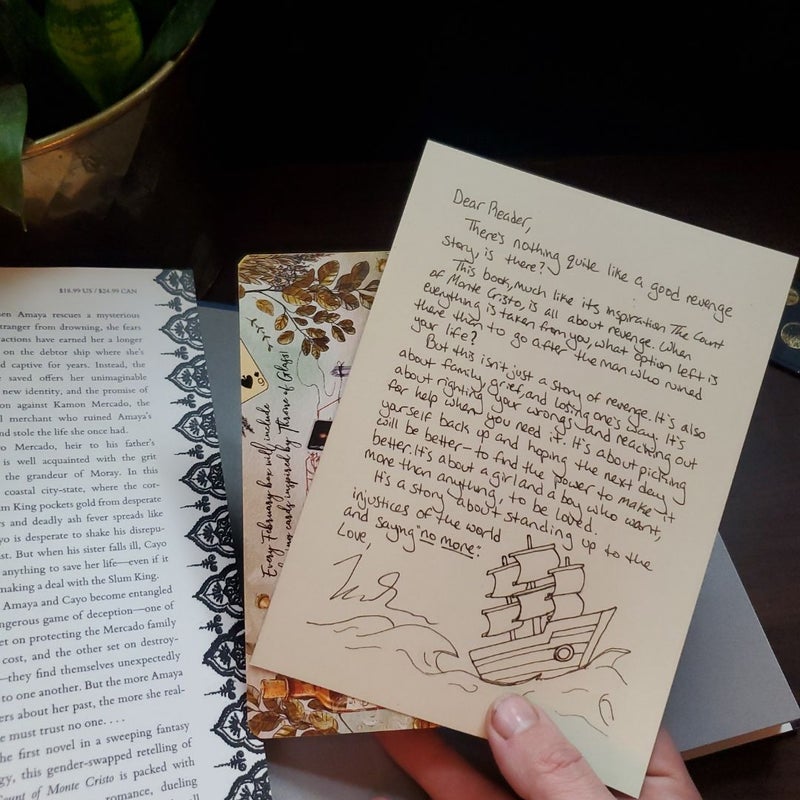 $18.99 US / $24.99 CAN
en Amaya rescues a mysterious
tranger from drowning, she fears
actions have earned her a longer
on the debtor ship where she's
d captive for years. Instead, the
saved offers her unimaginable
new identity, and the promise of
on against Kamon Mercado, the
l merchant who ruined Amaya's
nd stole the life she once had.
o Mercado, heir to his father's
is well acquainted with the grit
the grandeur of Moray. In this
coastal city-state, where the cor-
m King pockets gold from desperate
rs and deadly ash fever spreads like
yo is desperate to shake his disrepu-
st. But when his sister falls ill, Cayo
anything to save her life—even if it
making a deal with the Slum King.
Amaya and Cayo become entangled
dangerous game of deception—one of
et on protecting the Mercado family
cost, and the other set on destroy-
—they find themselves unexpectedly
to one another. But the more Amaya
ers about her past, the more she real-
e must trust no one. . . .
he first novel in a sweeping fantasy
gy, this gender-swapped retelling of
Count of Monte Cristo is packed with
romance, dueling
Every February box will include
cards inspired by Throne of Glass!
Dear Reader,
There's nothing quite like a good revenge
story, is there?
This book, much like its inspiration The Count
of Monte Cristo, is all about revenge. When
everything is taken from you, what option left is
there than to go after the man who ruined
your life?
But this isn't just a story of revenge. It's also
about family, grief, and losing one's way. It's
about righting your wrongs and reaching out
for help when you need it. It's about picking
yourself back up and hoping the next day
will be better—to find the power to make it
better. It's about a girl and a boy who want,
more than anything, to be loved.
It's a story about standing up to the
injustices of the world
and sayng "no more."
Love,